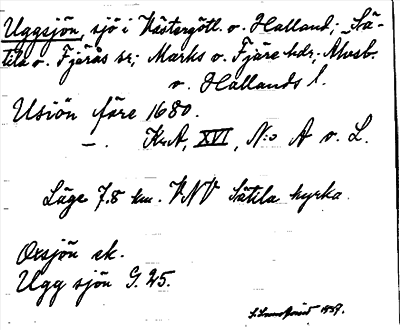 Uggsjön, sjö i Västergötl. o. Halland; Sä-
tila o. Fjärås sr; Marks o. Fjäre hdr; Älvsb.
o. Hallands l.
Usiön före 1680.
—. KrA, XVI, N:o A o. L.
Läge 7.8 km. VNV Sätila kyrka.
Oxsjön ek.
Ugg sjön G. 25.
1927.